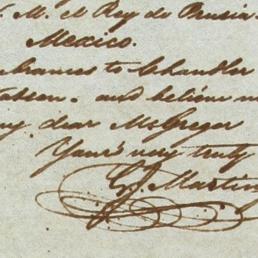 S. M. el Rey de Prusia.
Mexico.
to Chandler
and believe me
my dear McGregor
Yours very truly
G. Martin